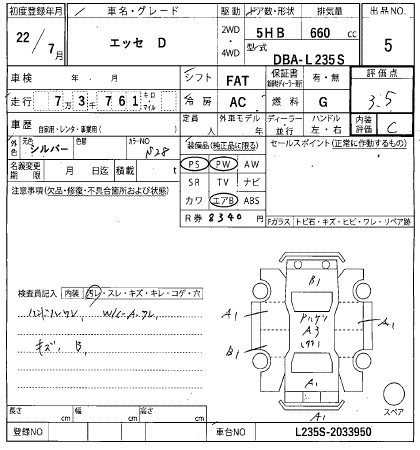 初度登録年月
22/7月
車名・グレード
エッセ D
駆動
2WD
・
4WD
ドア数・形状
5HB
排気量
660 cc
型式
DBA-L235S
出品NO.
5
車検 年 月
シフト FAT
保証書 有・無
評価点
3.5
走行 7万3千761 キロ・マイル
冷房 AC
燃料 G
内装評価 C
車歴 自家用・レンタ・事業用( )
定員 人
外車モデル 年
ディーラー・並行
ハンドル 左・右
外色 元色 シルバー
色替
カラーNO S28
装備品(純正品に限る)
PS PW AW
SR TV ナビ
カワ エアB ABS
R券 8340 円
セールスポイント(正常に作動するもの)
名義変更期限 月 日迄
積載 t
注意事項(欠品・修復・不具合箇所および状態)
Fガラス トビ石・キズ・ヒビ・ワレ・リペア跡
検査員記入 内装 汚レ・スレ・キズ・キレ・コゲ・穴
キズ、B,
B1
A1
A3
A1
B1
A1
A1
スペア
長さ cm
幅 cm
高さ cm
登録NO
車台NO L235S-2033950